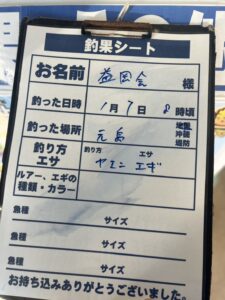 釣果シート
お名前 益岡会 様
釣った日時 1月7日 8時頃
釣った場所 元島 地磯 沖磯 堤防
釣り方 エサ 釣り方 エサ ヤエン エギ
ルアー、エギの種類・カラー
魚種 サイズ
魚種 サイズ
魚種 サイズ
お持ち込みありがとうございました。